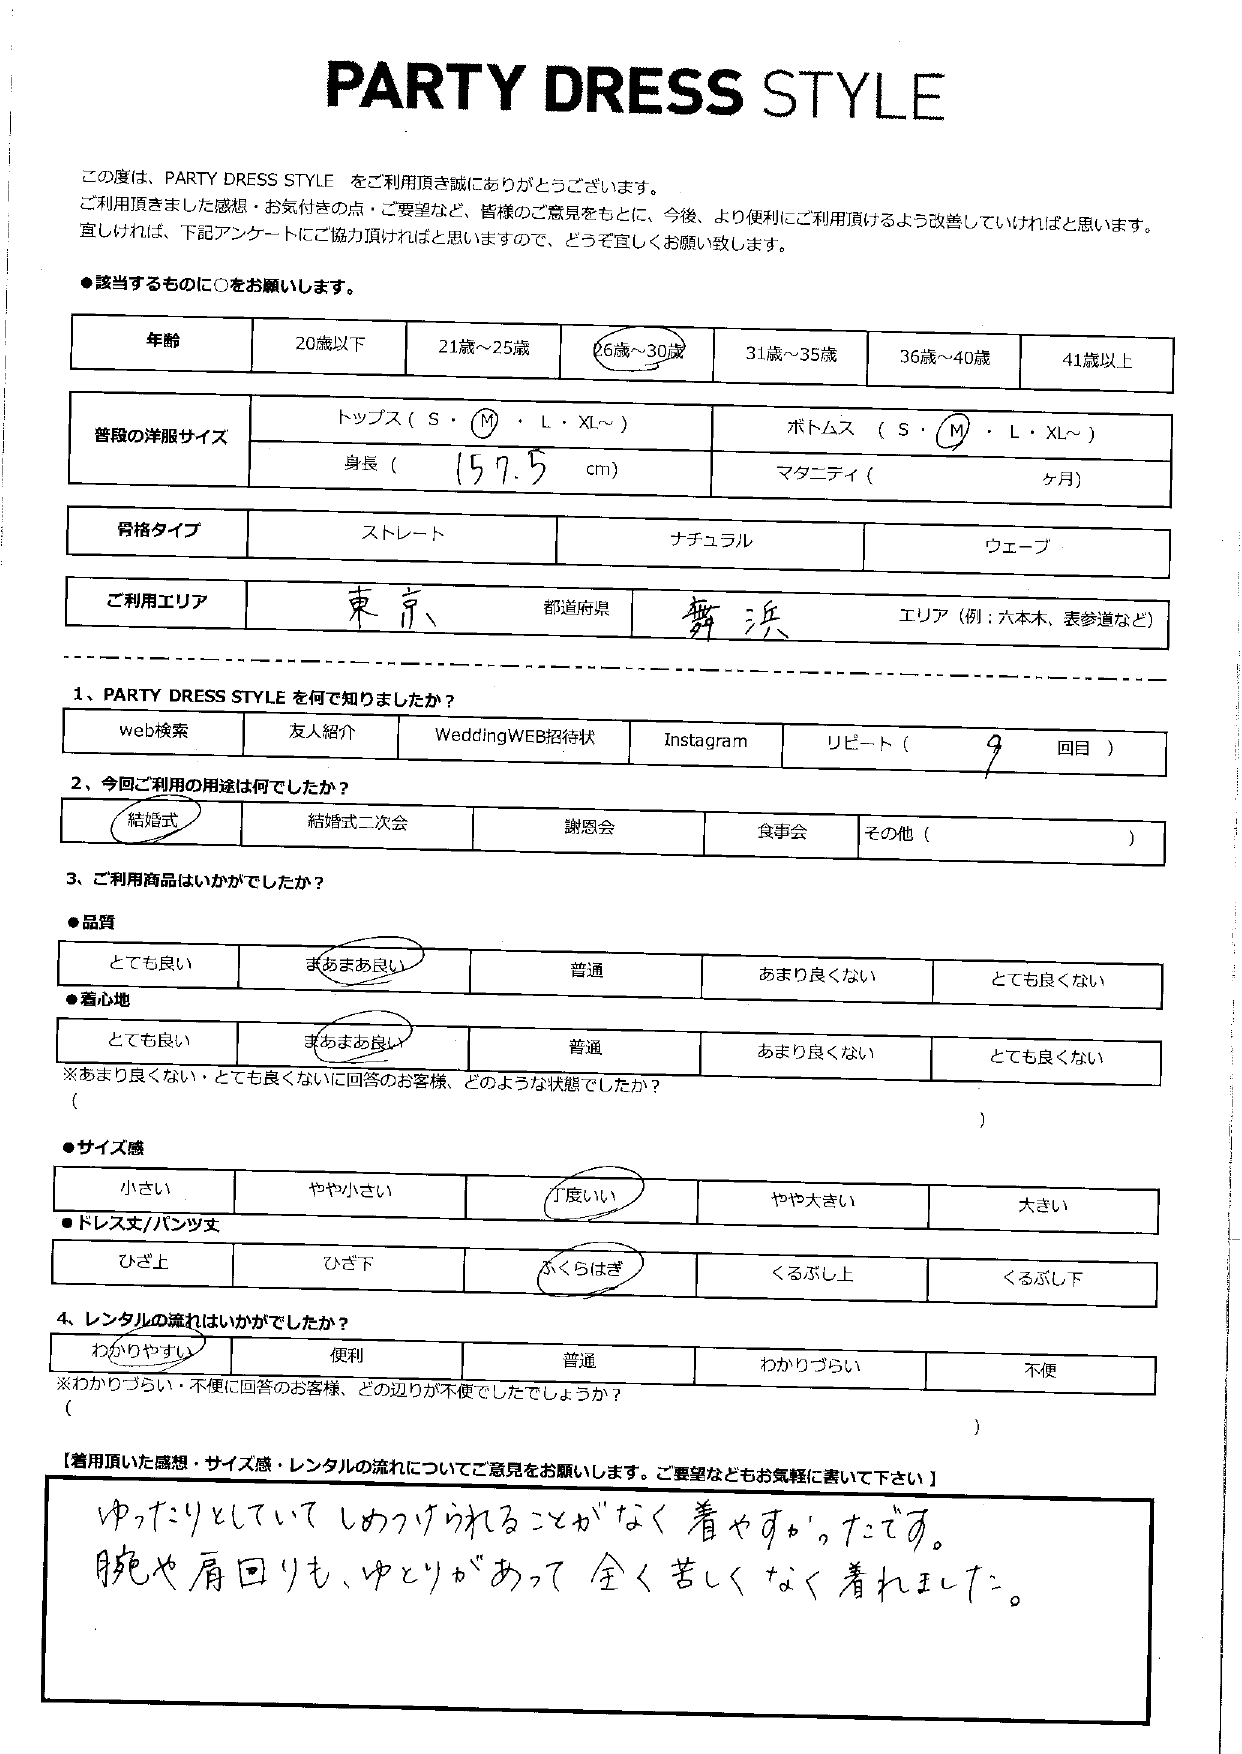 PARTY DRESS STYLE
この度は、PARTY DRESS STYLE をご利用頂き誠にありがとうございます。
ご利用頂きました感想・お気付きの点・ご要望など、皆様のご意見をもとに、今後、より便利にご利用頂けるよう改善していければと思います。
宜しければ、下記アンケートにご協力頂ければと思いますので、どうぞ宜しくお願い致します。
●該当するものに○をお願いします。
年齢 20歳以下 21歳～25歳 26歳～30歳 31歳～35歳 36歳～40歳 41歳以上
普段の洋服サイズ トップス ( S ・ M ・ L ・ XL～ ) ボトムス ( S ・ M ・ L ・ XL～ )
身長 ( 157.5 cm) マタニティ ( ヶ月)
骨格タイプ ストレート ナチュラル ウェーブ
ご利用エリア 東京 都道府県 舞浜 エリア（例：六本木、表参道など）
1、PARTY DRESS STYLE を何で知りましたか？
web検索 友人紹介 WeddingWEB招待状 Instagram リピート ( 9 回目 )
2、今回ご利用の用途は何でしたか？
結婚式 結婚式二次会 謝恩会 食事会 その他 ( )
3、ご利用商品はいかがでしたか？
●品質
とても良い まあまあ良い 普通 あまり良くない とても良くない
●着心地
とても良い まあまあ良い 普通 あまり良くない とても良くない
※あまり良くない・とても良くないに回答のお客様、どのような状態でしたか？
( )
●サイズ感
小さい やや小さい 丁度いい やや大きい 大きい
●ドレス丈/パンツ丈
ひざ上 ひざ下 ふくらはぎ くるぶし上 くるぶし下
4、レンタルの流れはいかがでしたか？
わかりやすい 便利 普通 わかりづらい 不便
※わかりづらい・不便に回答のお客様、どの辺りが不便でしたでしょうか？
( )
【着用頂いた感想・サイズ感・レンタルの流れについてご意見をお願いします。ご要望などもお気軽に書いて下さい】
ゆったりとしていてしめつけられることがなく着やすかったです。
腕や肩回りも、ゆとりがあって全く苦しくなく着れました。